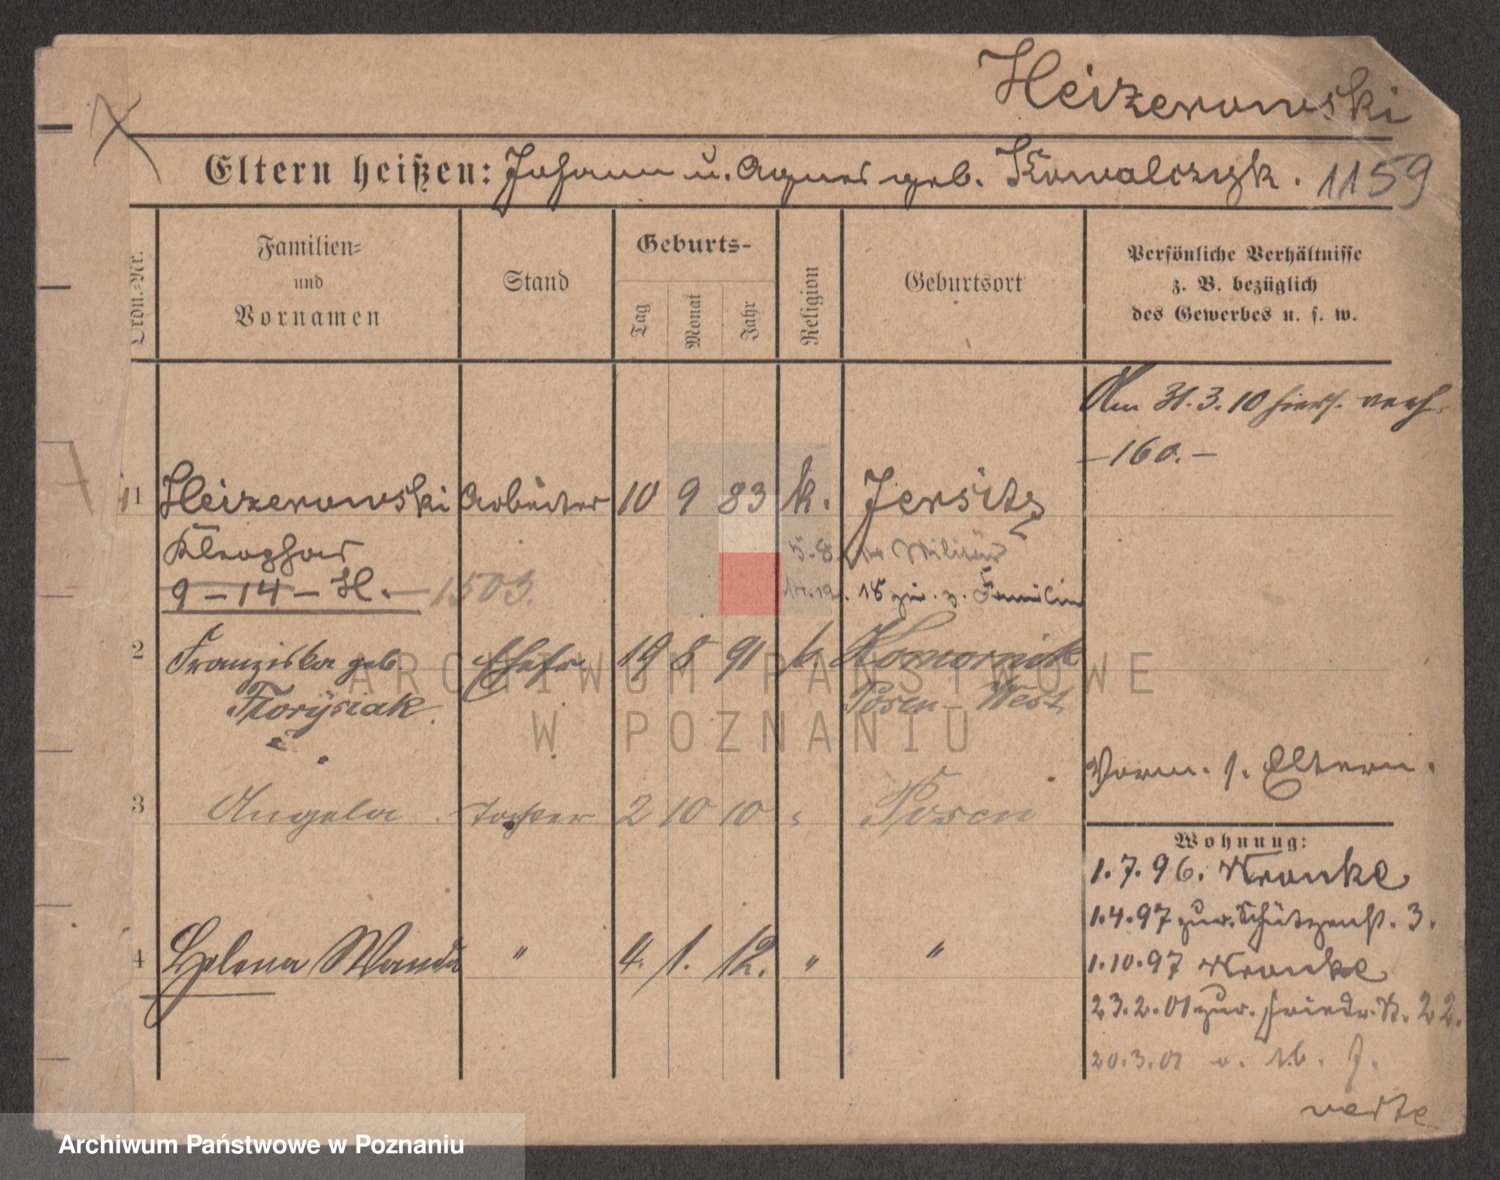 Heizerowski
Eltern heißen: Johann u. Agnes geb. Kowalczyk. 1159
Ordn.-Nr.
Familien-
und
Vornamen
Stand
Geburts-
Tag
Monat
Jahr
Religion
Geburtsort
Persönliche Verhältnisse
z. B. bezüglich
des Gewerbes u. s. w.
Am 31.3.10 hiers. verh.
-160.-
1 Heizerowski Arbeiter 10 9 83 k. Jersitz
Kleophas
5.8. Militär
9-14-H.- 1503.
18 zur. z. Familie
2 Franziska geb. Ehefr. 19 8 91 k. Komornik
Florysiak Posen-West
Vorm. s. Eltern.
3 Angela Tochter 2 10 10 " Posen
Wohnung:
1.7.96. Kronke
1.4.97 zur. Schützenst. 3.
4 Helena Wanda " 4. 1. 12. " "
1.10.97 Kronke
23.2.01 zur. Friedr. 22.
20.3.01
verte
ARCHIWUM PAŃSTWOWE
W POZNANIU
Archiwum Państwowe w Poznaniu